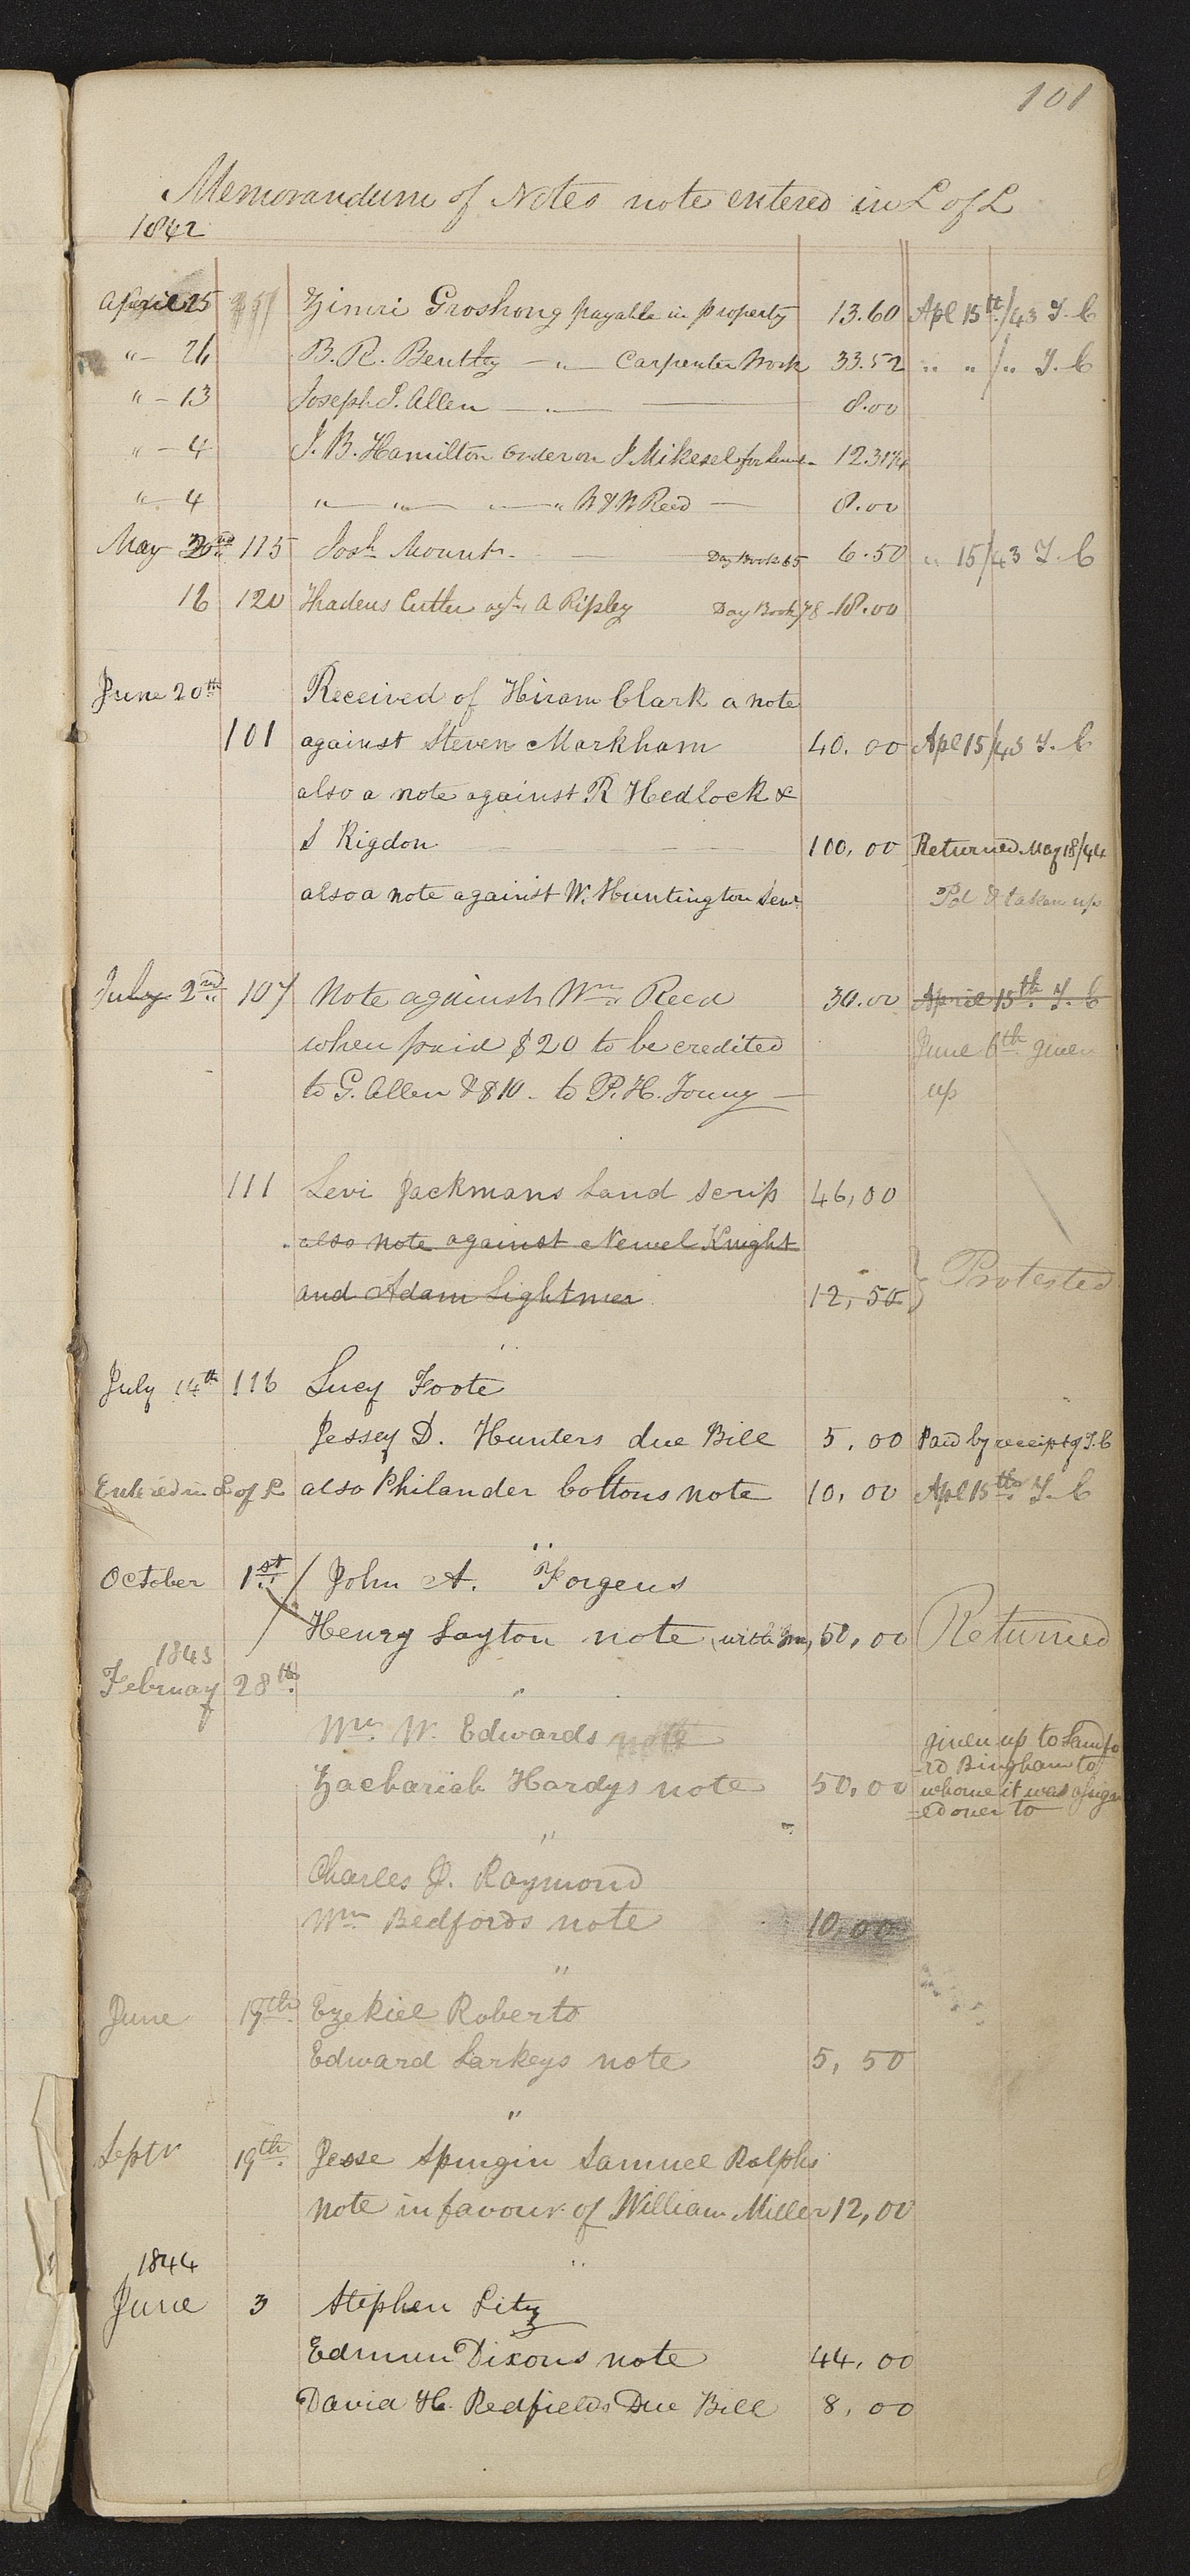 101
Memorandum of Notes note entered in L of L
1842
April 25 Zimri Groshong payable in property 13.60 Apl 15th/43 T. C
"- 26 B. R. Bentley —"— Carpenter Work 33.52 " " /" T. C
"- 13 Joseph S. Allen —"— 8.00
"- 4 J. B. Hamilton order on J Mikesel for 12.31¼
"- 4 " " " " W & W Reed — 8.00
May 115 Josh Mount. Day Book 65 6.50 " 15/43 T. C
16 120 Thadeus Cutler agt A Ripley Day Book 78 18.00
June 20th Received of Hiram Clark a note
101 against Steven Markham 40.00 Apl 15/43 T. C
also a note against R Hedlock &
S Rigdon 100,00 Returned May 18/44
also a note against W. Huntington Senr Pd & taken up
July 2nd 107 Note against Wm Reed 30.00 April 15th T. C
when paid $20 to be credited June 6th given
to G. Allen & $10 - to P. H. Young — up
111 Levi Jackmans Land scrip 46,00
also note against Newel Knight
and Adam Lightner 12,50 } Protested
July 14th 116 Lucy Foote
Jessey D. Hunters due Bill 5,00 Paid by receipt of T. C
Entered in L of L also Philander Coltons note 10,00 Apl 15th T. C
October 1st / John A. Forgeus
Henry Layton note with Int, 50,00 Returned
1843
February 28th "
Wm W. Edwards note given up to Samfo
Zachariah Hardys note 50,00 -rd Bingham to
whome it was assign
-ed over to
"
Charles J. Raymond
Wm Bedfords note 10,00
"
June 19th Ezekiel Roberts
Edward Larkeys note 5,50
"
Septr 19th Jesse Spurgin Samuel Rolphs
note in favour of William Miller 12,00
"
1844
June 3 Stephen Litz
Edmun Dixons note 44,00
David H. Redfields Due Bill 8,00